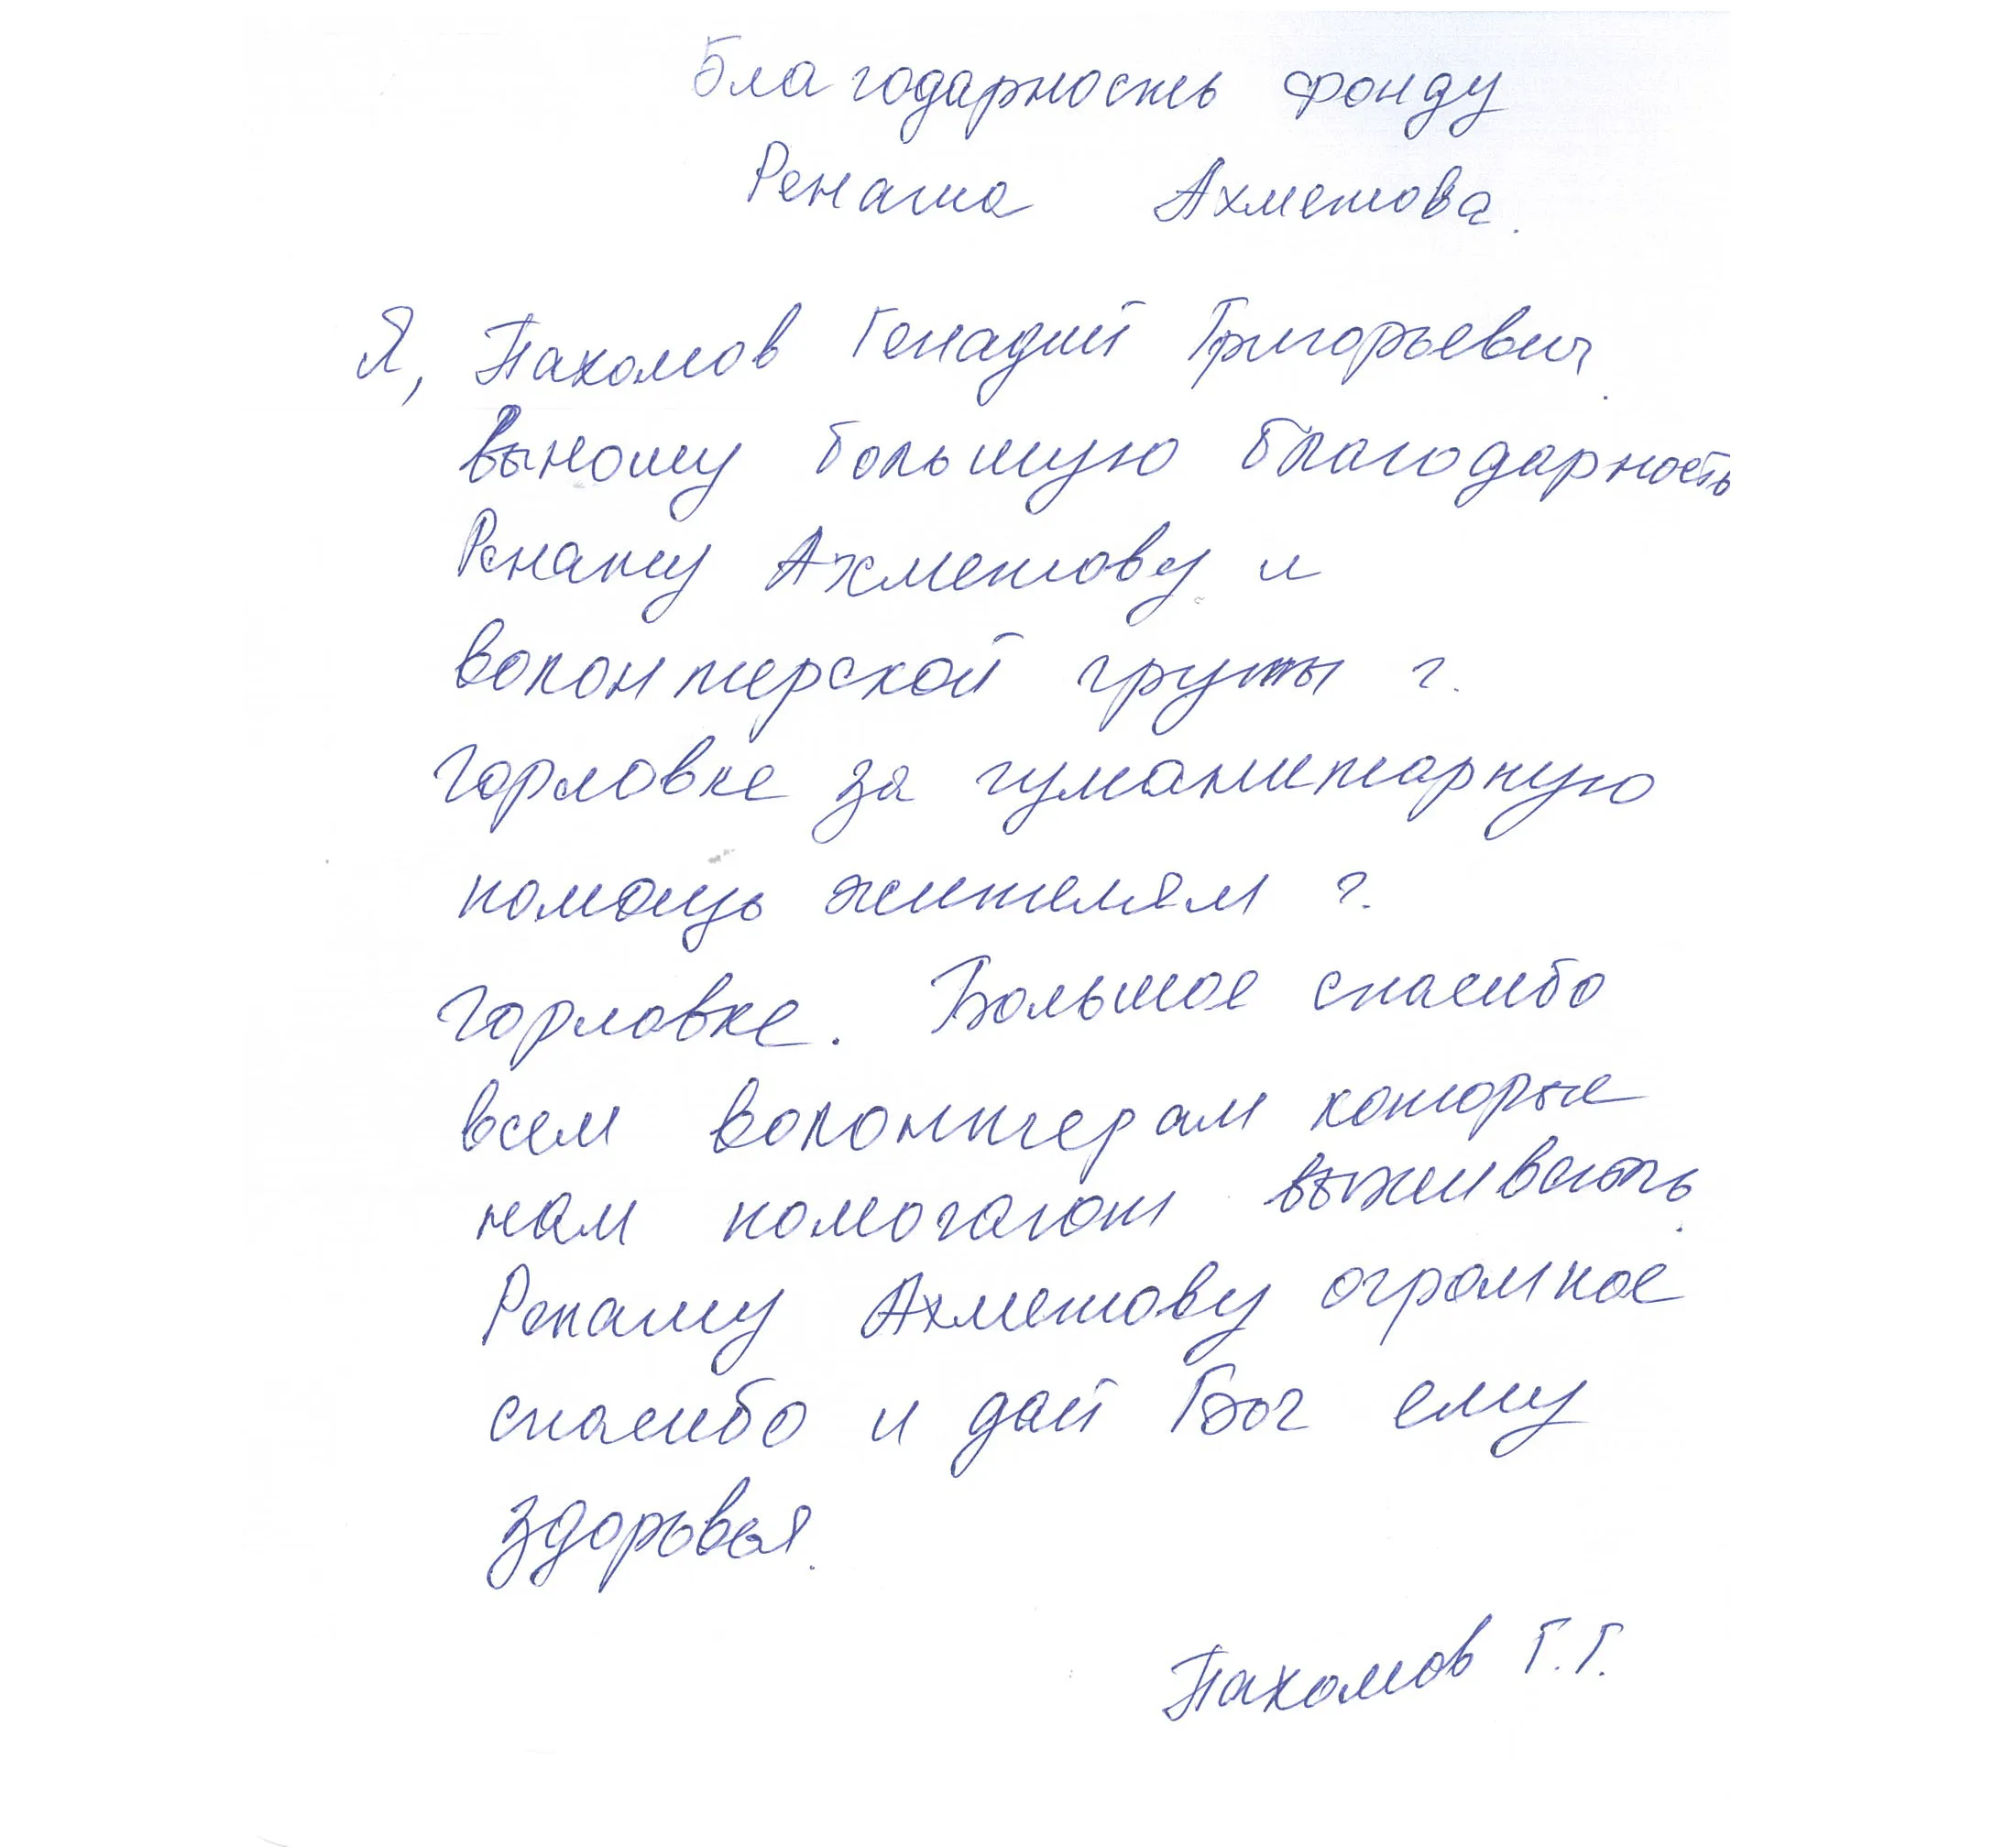 Благодарность фонду
Рената Ахметова.
Я, Пахомов Генадий Григорьевич.
выношу большую благодарность
Ренату Ахметову и
волонтерской групы г.
Горловке за гуманитарную
помощь жителям г.
Горловке. Большое спасибо
всем волонтерам которые
нам помогают выживать.
Ренату Ахметову огромное
спасибо и дай Бог ему
здоровья.
Пахомов Г.Г.